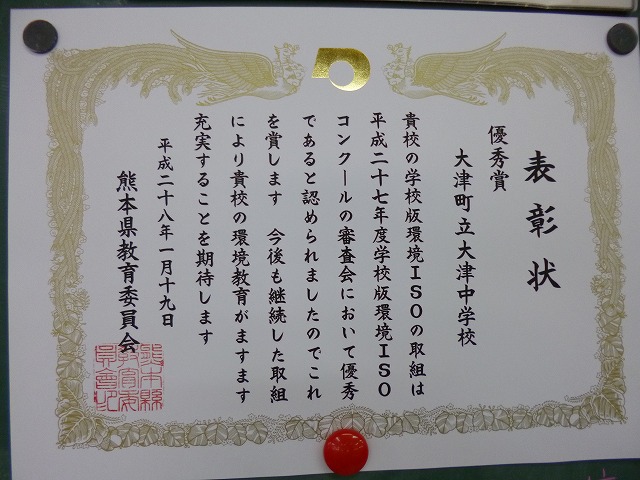 表彰状
優秀賞
大津町立大津中学校
貴校の学校版環境ISOの取組は
平成二十七年度学校版環境ISO
コンクールの審査会において優秀
であると認められましたのでこれ
を賞します　今後も継続した取組
により貴校の環境教育がますます
充実することを期待します
平成二十八年一月十九日
熊本県教育委員会
熊本縣
教育委
員會印